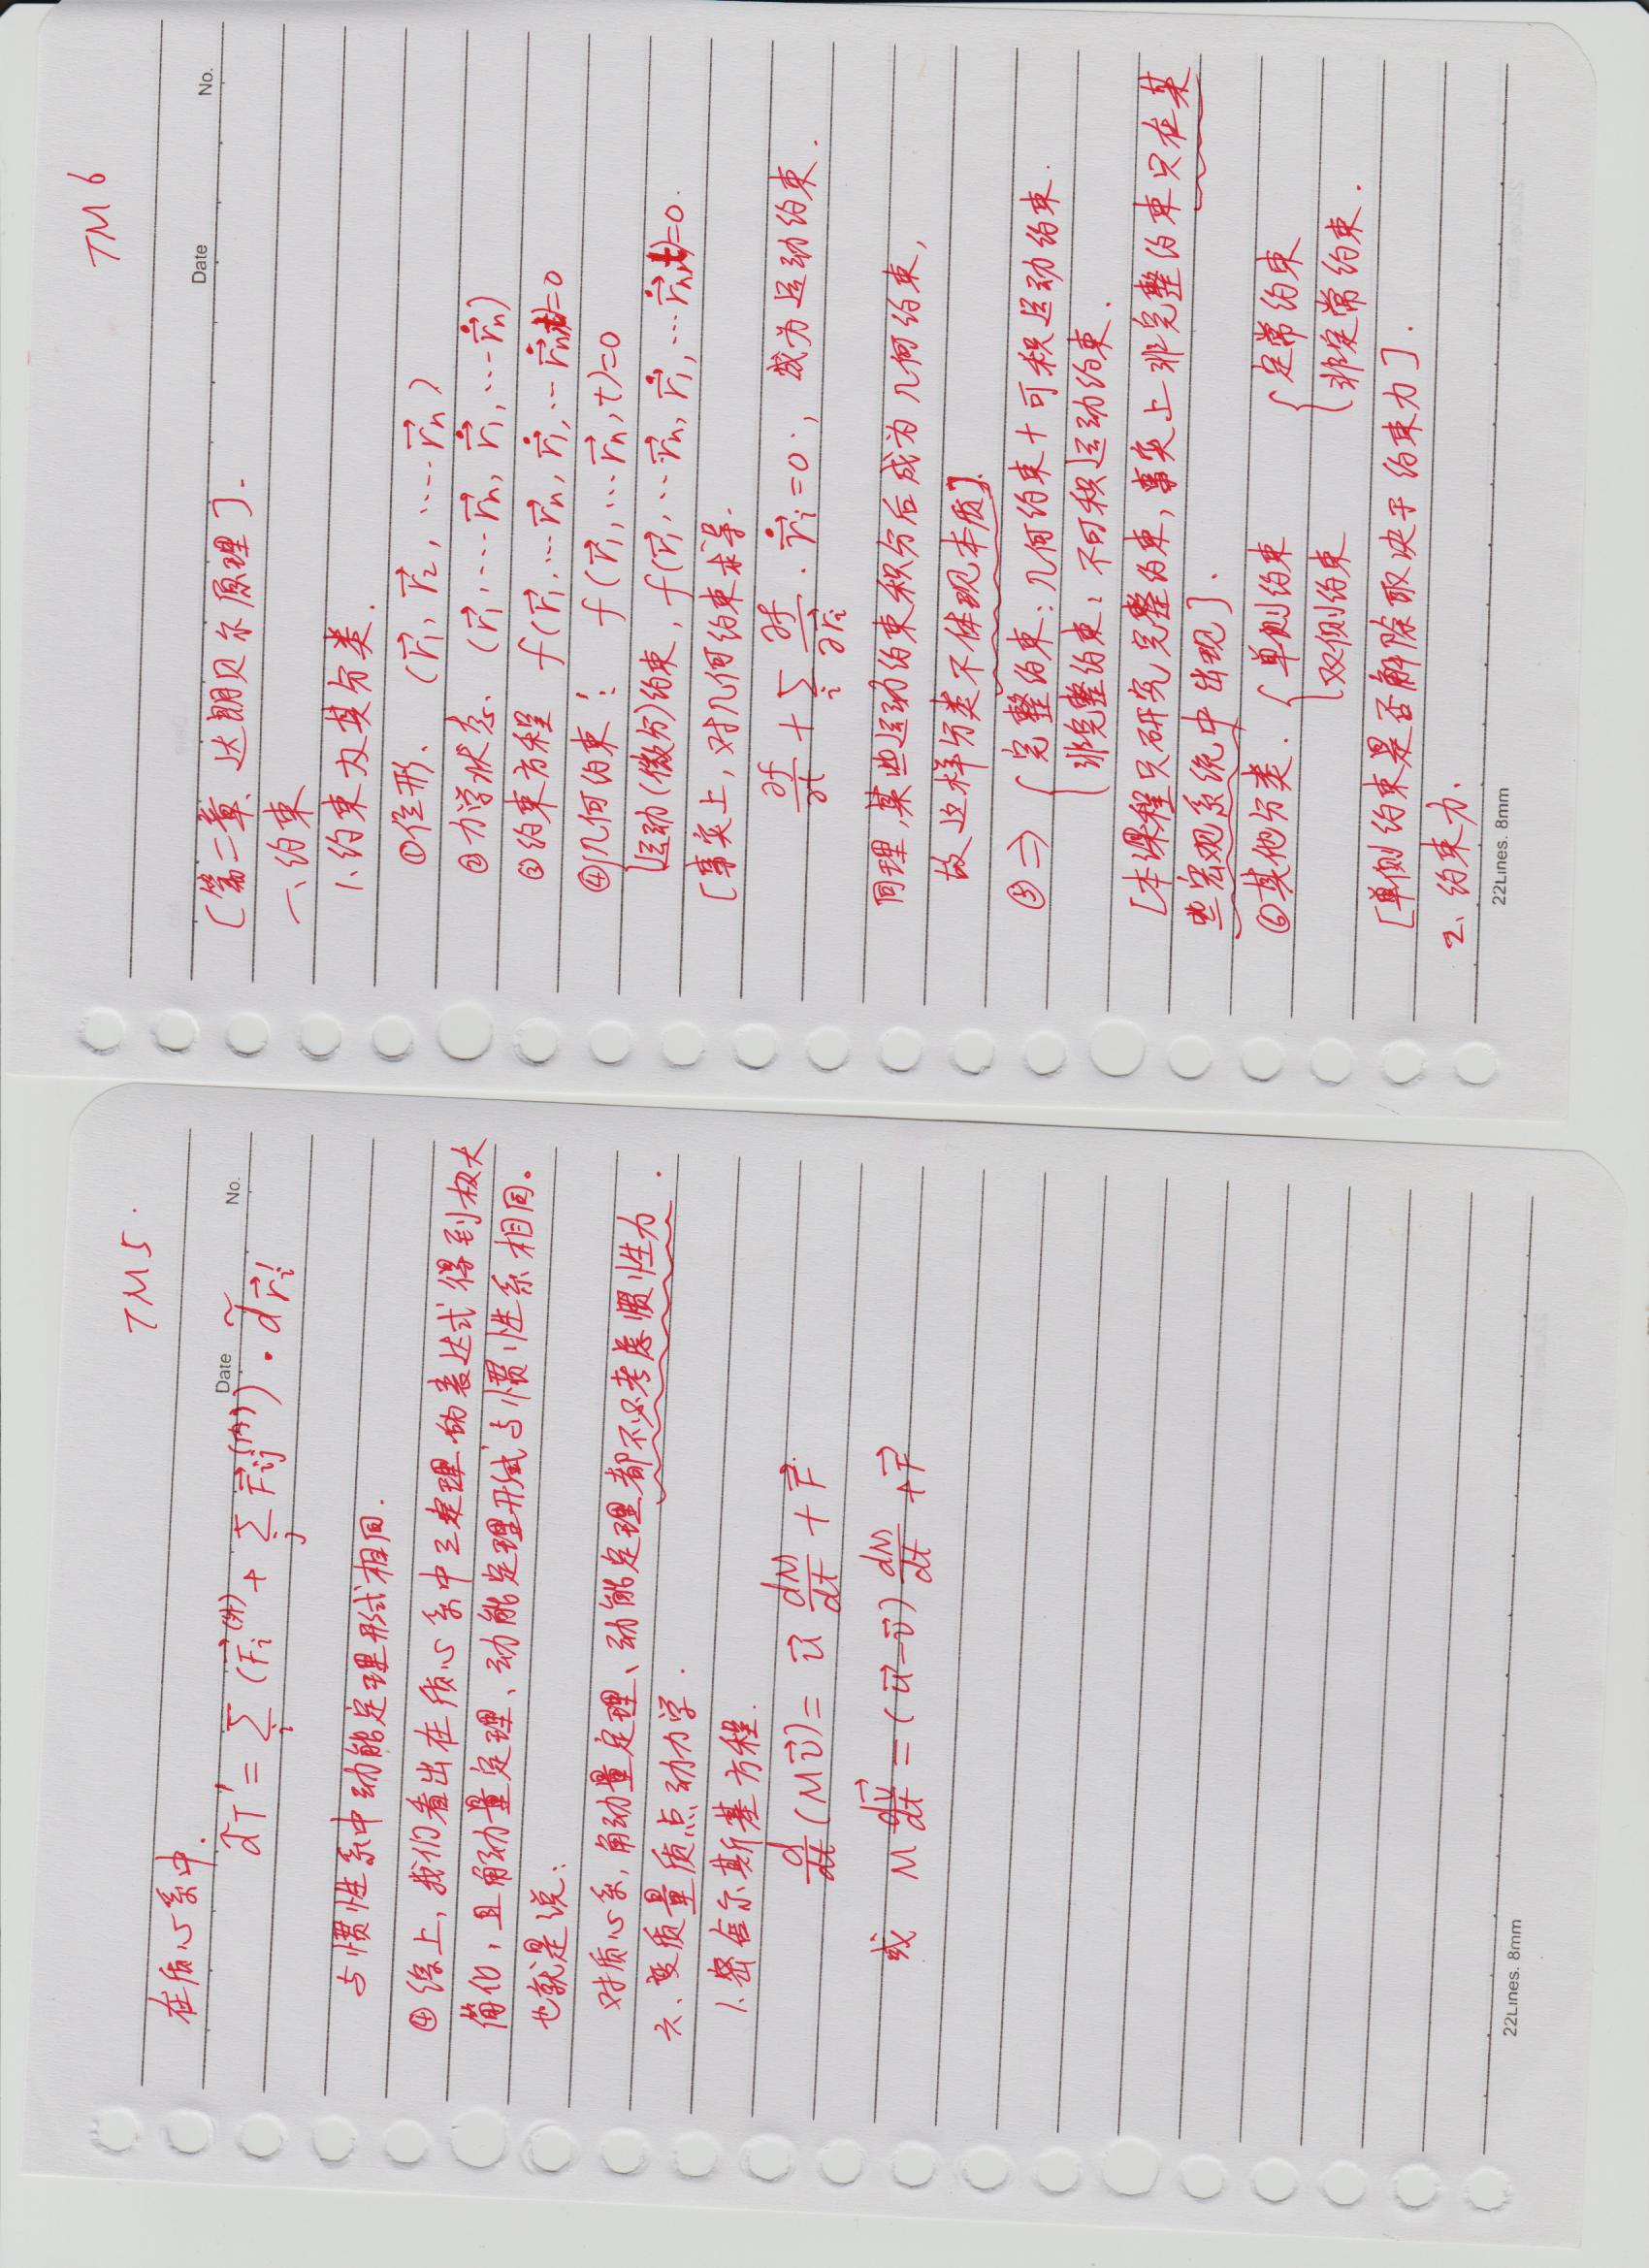 TM5.
在质心系中.
Date No.
d̃T' = Σ_i (F⃗_i^(外) + Σ_j F⃗_ij^(内)) · d̃r⃗_i'
与惯性系中动能定理形式相同.
④综上,我们看出在质心系中三定理的表达式得到极大
简化,且角动量定理、动能定理形式与惯性系相同。
也就是说:
对质心系,角动量定理、动能定理都不必考虑惯性力.
六、变质量质点动力学.
1.密舍尔斯基方程.
d/dt (Mv⃗) = u⃗ dM/dt + F⃗
或 M dv⃗/dt = (u⃗-v⃗) dM/dt + F⃗
22Lines. 8mm
TM6
Date No.
[第二章、达朗贝尔原理].
一、约束
1.约束及其分类.
①位形、 (r⃗₁, r⃗₂, ····r⃗ₙ)
②力学状态、 (r⃗₁, ···r⃗ₙ, ṙ⃗₁, ···ṙ⃗ₙ)
③约束方程 f(r⃗₁, ···r⃗ₙ, ṙ⃗₁, ···ṙ⃗ₙ,t)=0
④{几何约束: f(r⃗₁, ···r⃗ₙ, t)=0
运动(微分)约束, f(r⃗₁, ···r⃗ₙ, ṙ⃗₁, ···ṙ⃗ₙ,t)=0.
[事实上,对几何约束求导.
∂f/∂t + Σ_i ∂f/∂r⃗_i · ṙ⃗_i = 0, 成为运动约束.
同理,某些运动约束积分后成为几何约束,
故这样分类不体现本质].
⑤⇒ {完整约束:几何约束+可积运动约束.
非完整约束:不可积运动约束.
[本课程只研究完整约束,事实上非完整约束只在某
些宏观系统中出现].
⑥其他分类. {单侧约束 {定常约束
双侧约束 非定常约束.
[单侧约束是否解除取决于约束力].
2、约束力.
22Lines. 8mm